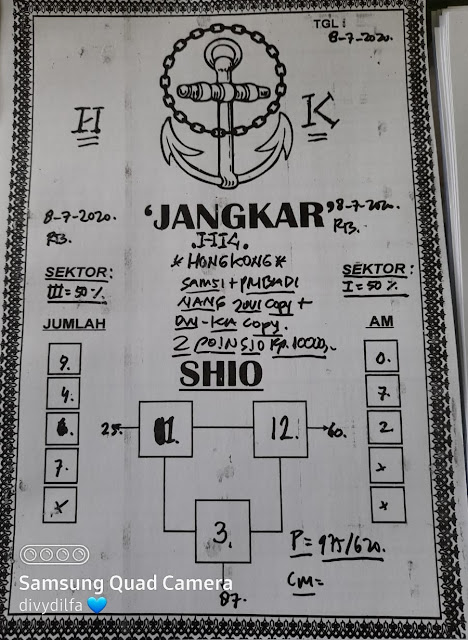 TGL :
8-7-2020.
H K
8-7-2020.
RB.
'JANGKAR'
8-7-2020.
RB.
.HK.
* HONGKONG *
SAMSI + PRIBADI
SEKTOR :
III = 50 %
SEKTOR :
I = 50 %
copy +
copy.
2 POIN SIO Rp. 10000,-
JUMLAH
AM
SHIO
9.
4.
6.
7.
x
0.
7.
2
x
x
25.
11.
12.
60.
3.
87.
P = 975/620.
CM =
Samsung Quad Camera
divydilfa 💙